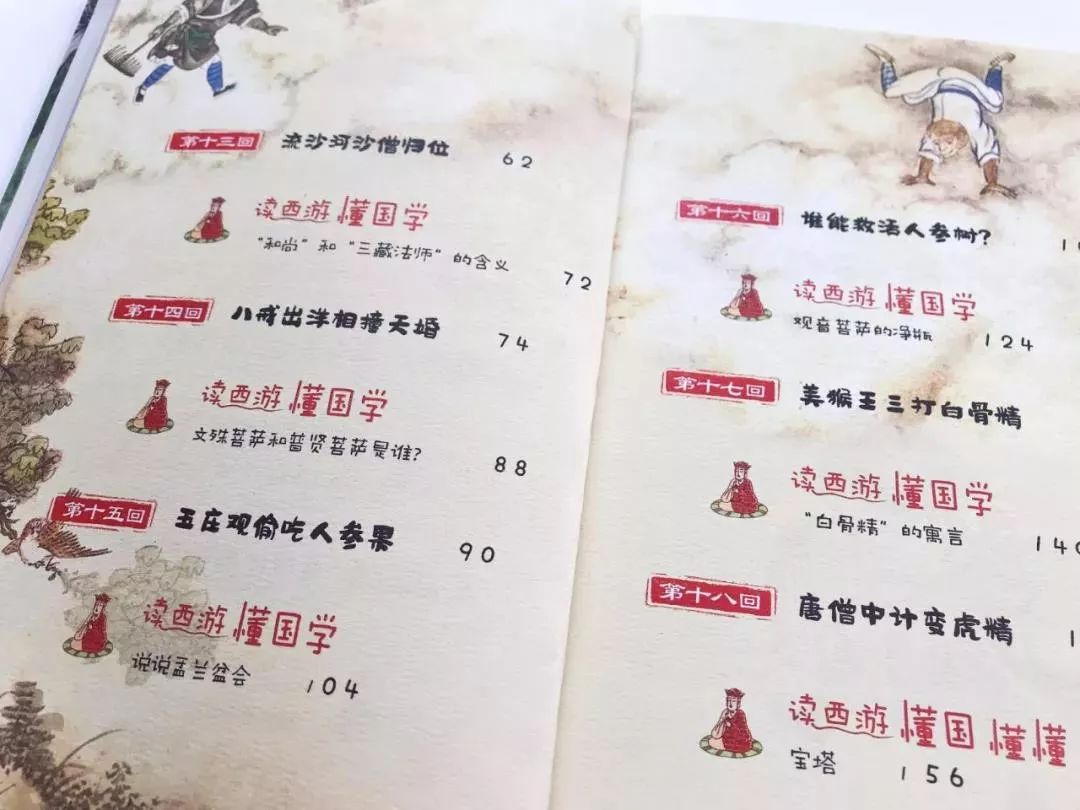 第十三回 流沙河沙僧归位 62
读西游 懂国学
“和尚”和“三藏法师”的含义 72
第十四回 八戒出洋相撞天婚 74
读西游 懂国学
文殊菩萨和普贤菩萨是谁? 88
第十五回 五庄观偷吃人参果 90
读西游 懂国学
说说盂兰盆会 104
第十六回 谁能救活人参树?
读西游 懂国学
观音菩萨的净瓶 124
第十七回 美猴王三打白骨精
读西游 懂国学
“白骨精”的寓言 140
第十八回 唐僧中计变虎精
读西游 懂国 懂懂
宝塔 156